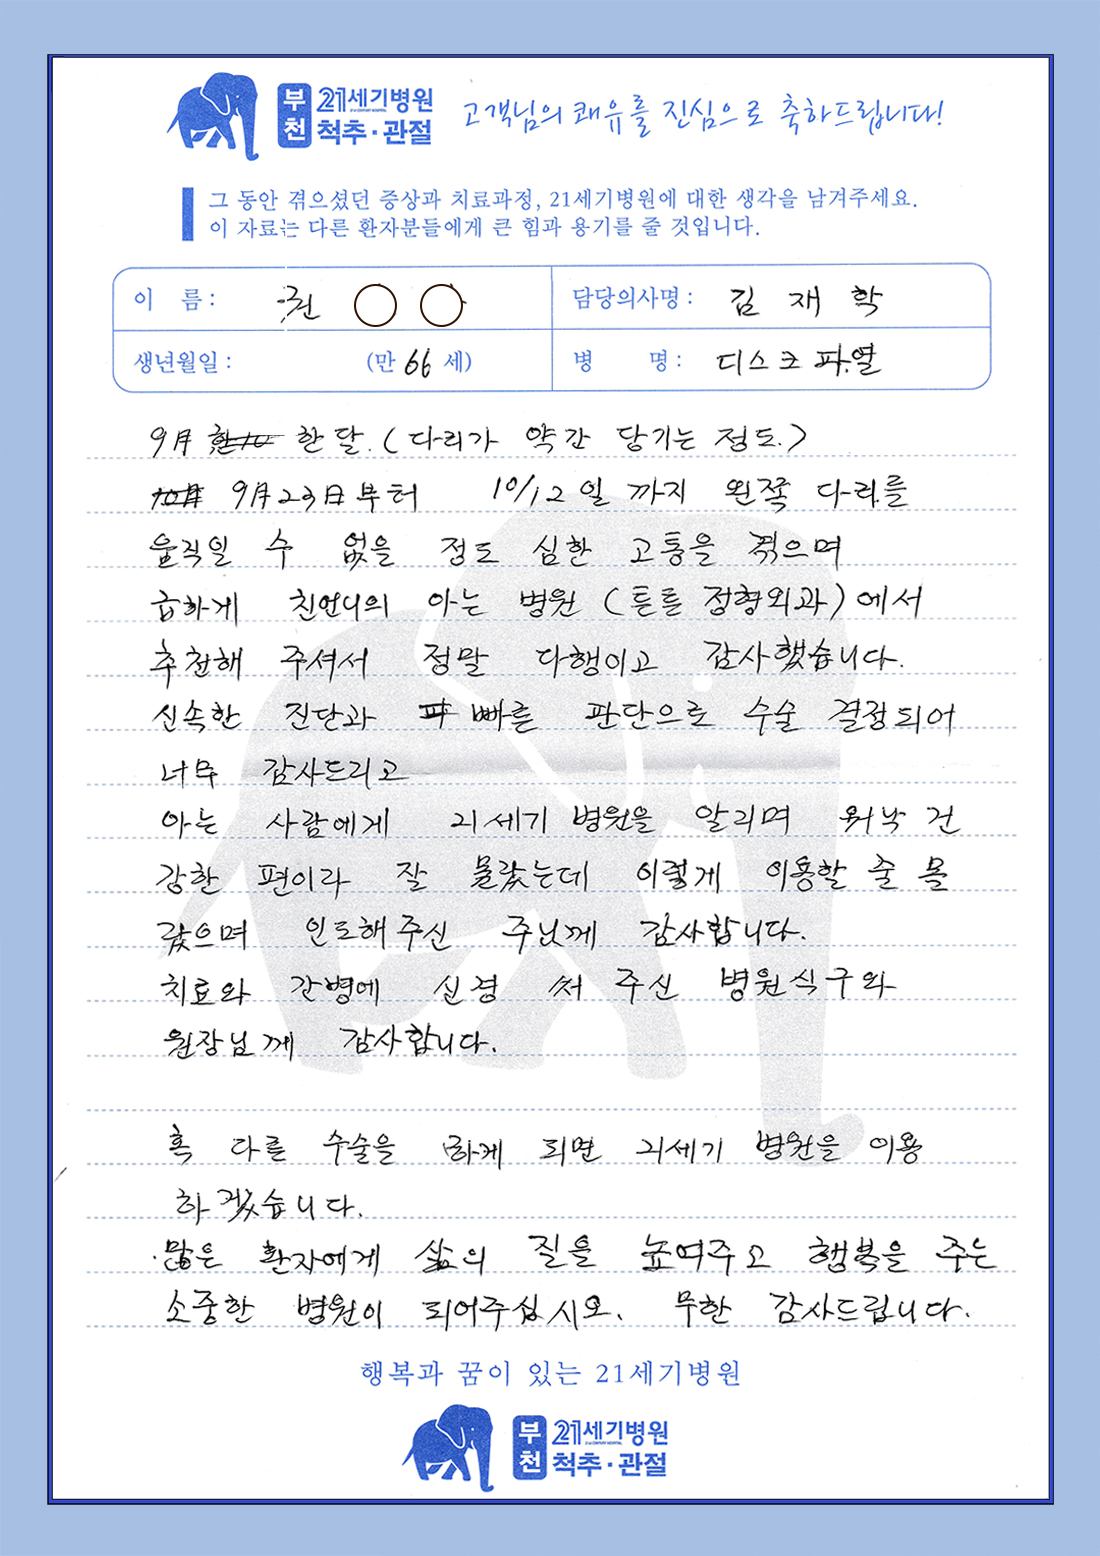 부천 21세기병원 척추·관절 고객님의 쾌유를 진심으로 축하드립니다!
그 동안 겪으셨던 증상과 치료과정, 21세기병원에 대한 생각을 남겨주세요.
이 자료는 다른 환자분들에게 큰 힘과 용기를 줄 것입니다.
이 름 : 권 ○ ○ 담당의사명 : 김 재 학
생년월일 : (만 66 세) 병 명 : 디스크 파열
9月 한달. (다리가 약간 당기는 정도.)
9月 23日부터 10/12일 까지 왼쪽 다리를
움직일 수 없을 정도 심한 고통을 겪으며
급하게 친언니의 아는 병원 (튼튼 정형외과)에서
추천해 주셔서 정말 다행이고 감사했습니다.
신속한 진단과 빠른 판단으로 수술 결정되어
너무 감사드리고
아는 사람에게 21세기 병원을 알리며 워낙 건
강한 편이라 잘 몰랐는데 이렇게 이용할 줄 몰
랐으며 인도해주신 주님께 감사합니다.
치료와 간병에 신경 써 주신 병원식구와
원장님께 감사합니다.
혹 다른 수술을 하게 되면 21세기 병원을 이용
하겠습니다.
·많은 환자에게 삶의 질을 높여주고 행복을 주는
소중한 병원이 되어주십시오. 무한 감사드립니다.
행복과 꿈이 있는 21세기병원
부천 21세기병원 척추·관절